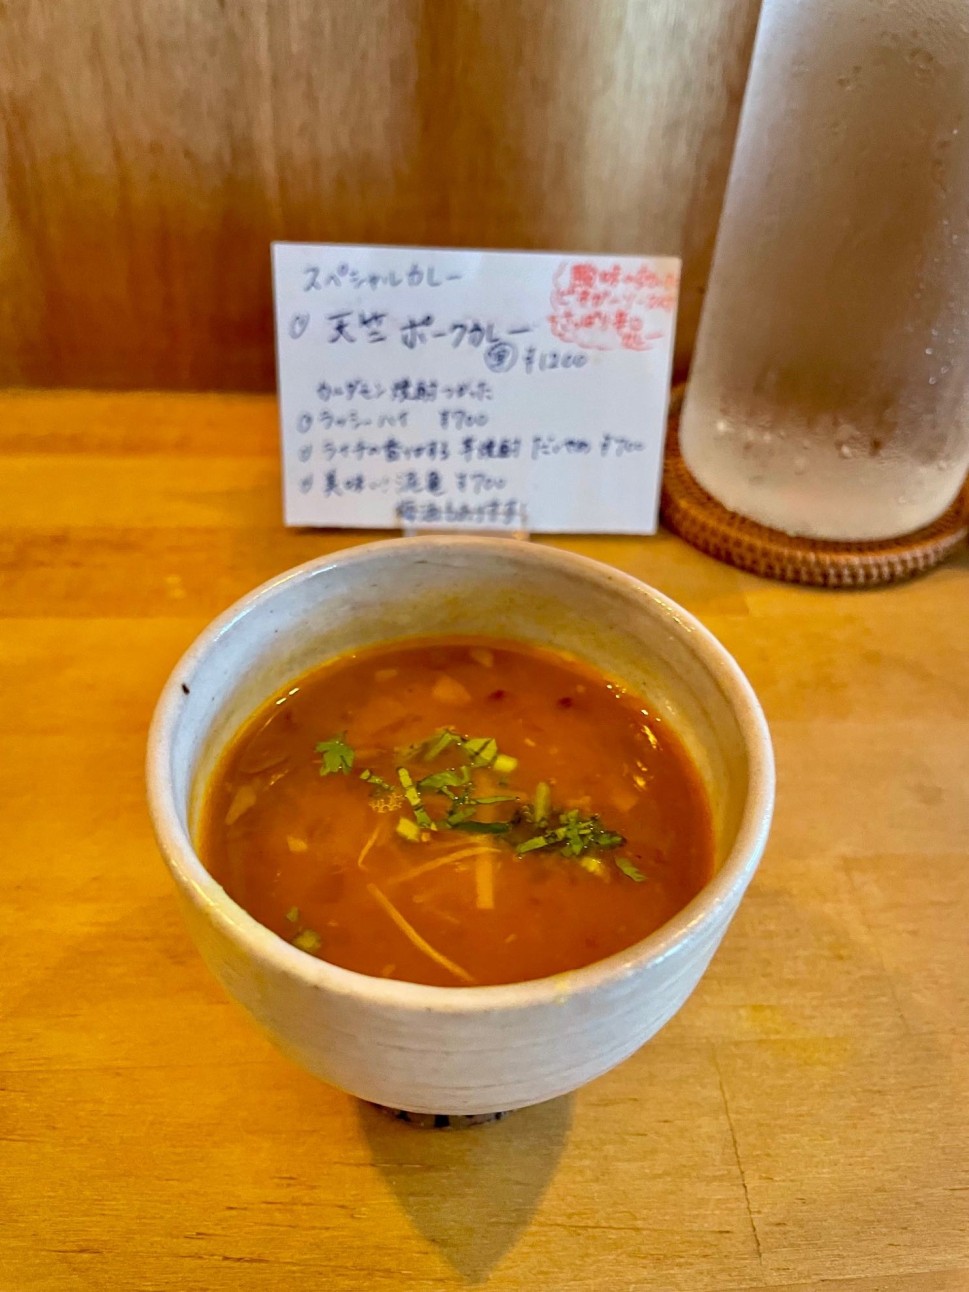 スペシャルカレー
天竺 ポークカレー
¥1200
カルダモン焼酎つかった
ラッシーハイ ¥700
ライチの香りがする 芋焼酎 だいやめ ¥700
美味い! ¥700
梅酒もあります!
酸味
ビネガー
さっぱり辛口
カレー